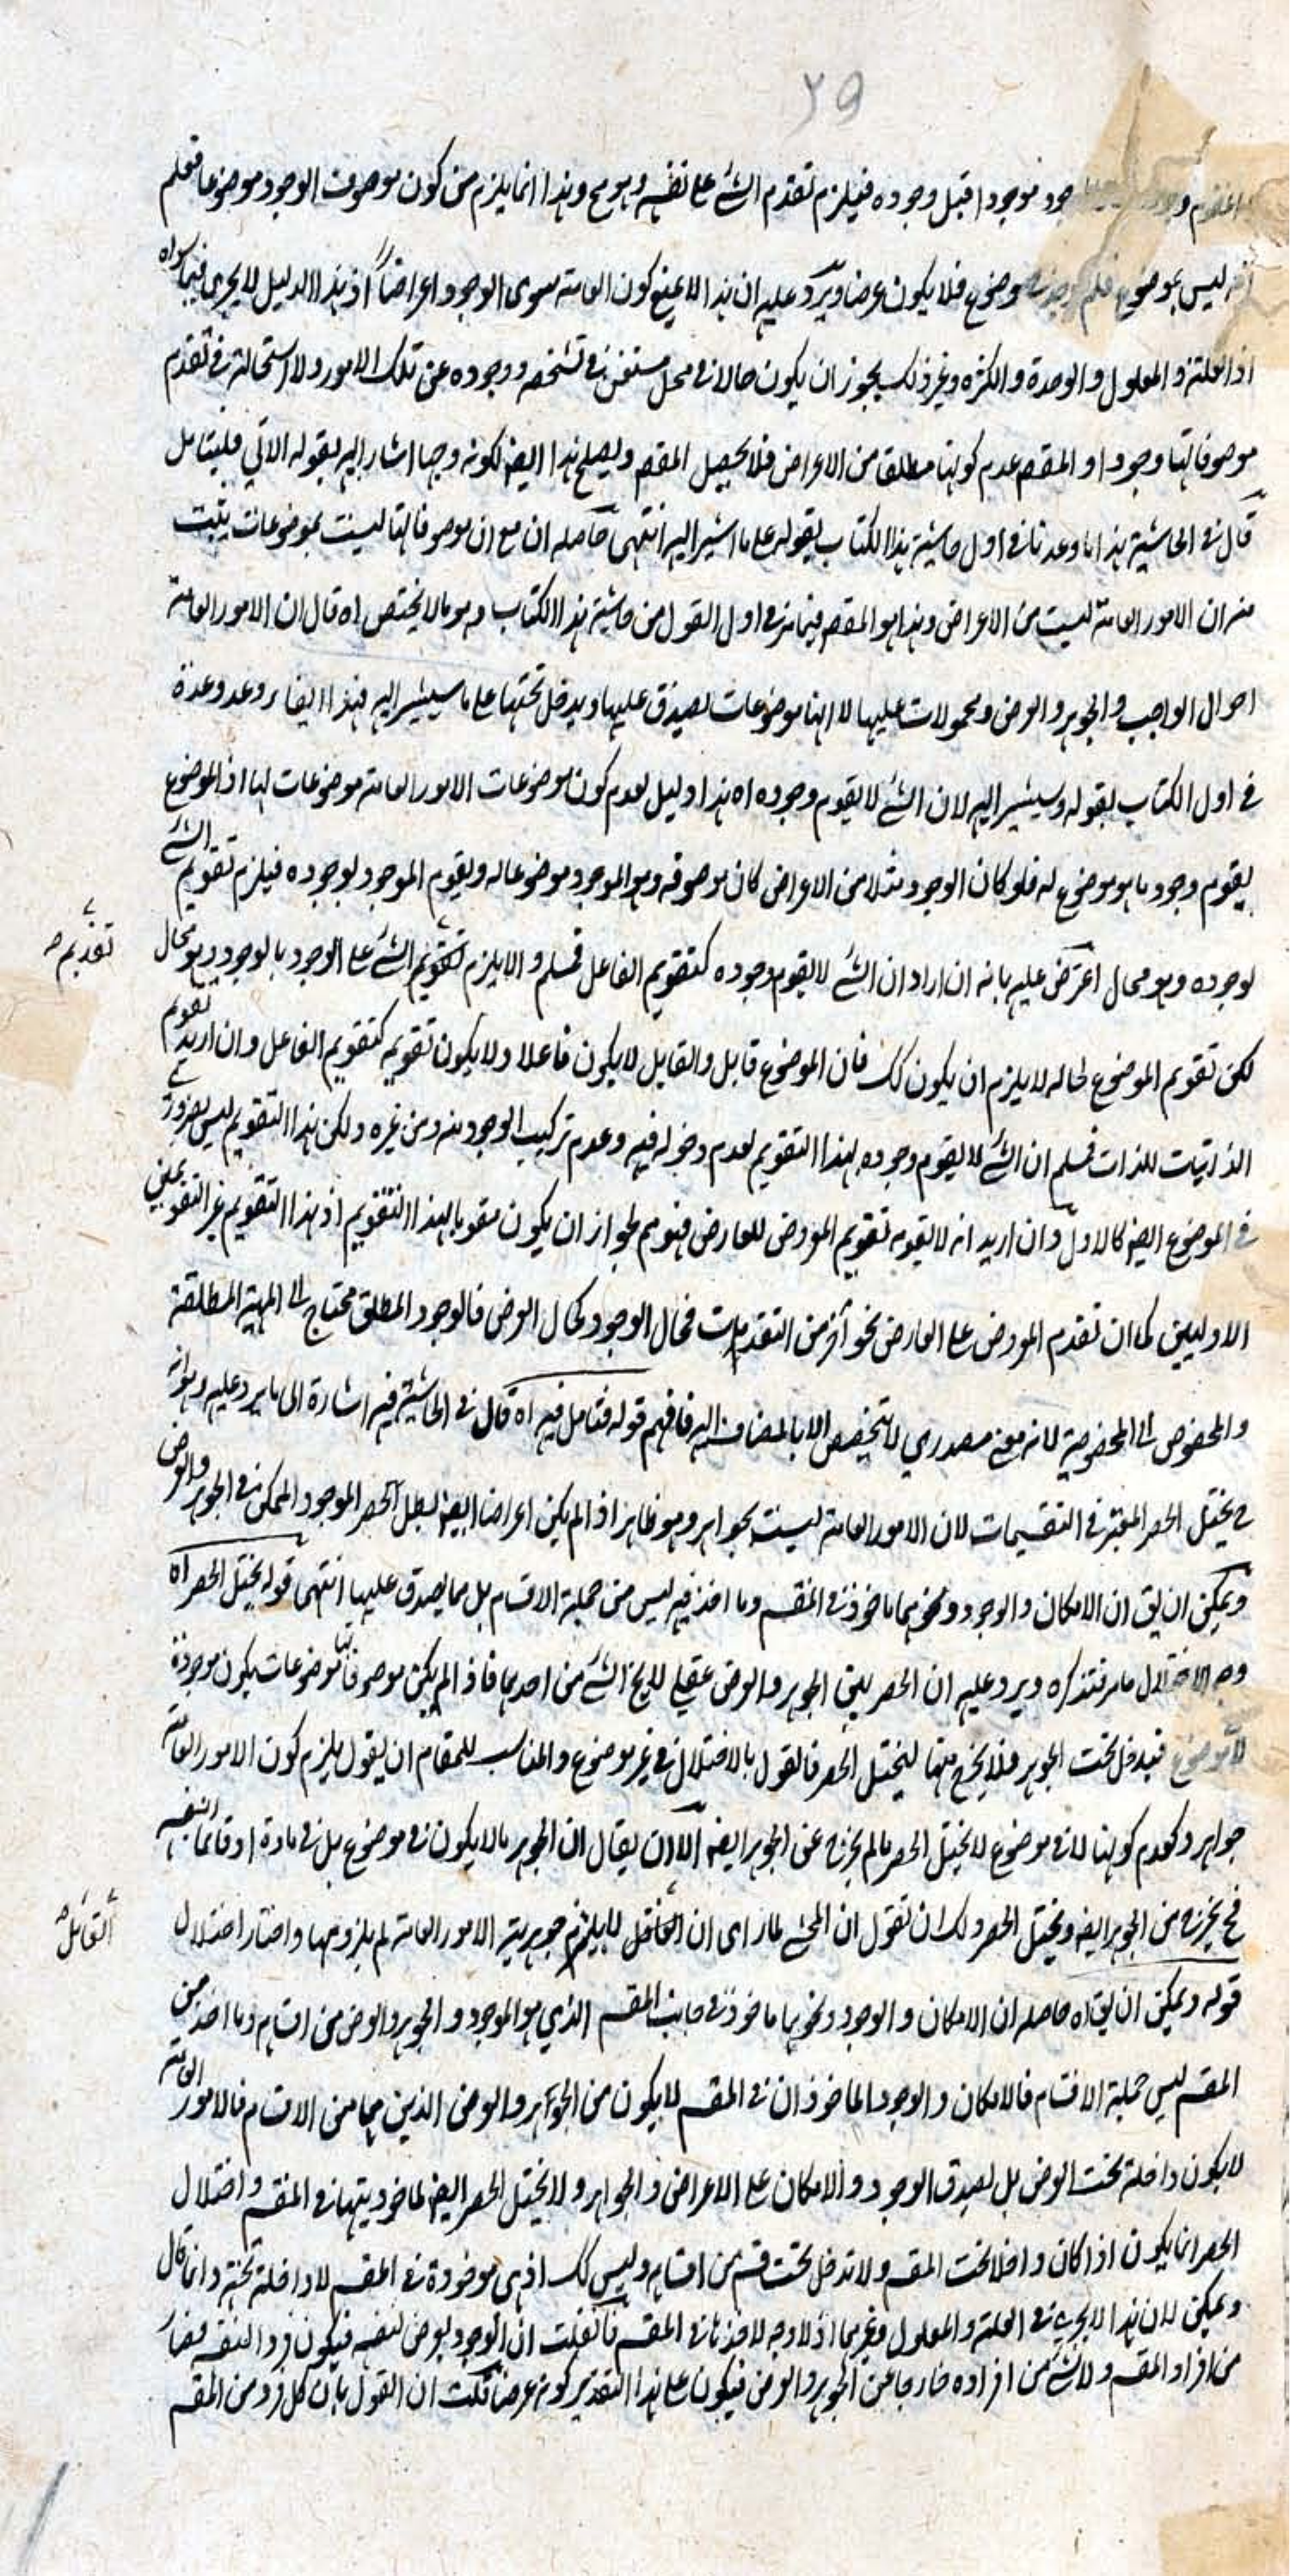 ٢٩
وجود موجودا قبل وجوده فيلزم تقدم الشئ على نفسه وهو مح وهذا انما يلزم من كون موصوف الوجود موضوعا فعلم
انه ليس بموضوع فلم يوجد في موضوع فلا يكون عرضا ويرد عليه ان هذا لا يمنع كون العامة سوى الوجود اعراضا اذ هذا الدليل لا يجرى فيما سواه
اذ العلة والمعلول والوحدة والكثره وغير ذلك يجوز ان يكون حالا في محل مستغن في تشخصه ووجوده عن تلك الامور ولا استحالة في تقدم
موصوفاتها وجودا والمقصم عدم كونها مطلقا من الاعراض فلا يحصل المقصم ويصلح هذا ايضا لكونه وجها اشار اليه بقوله الاتي فليتامل
قال في الحاشية هذا ما وعدنا في اول حاشية هذا الكتاب بقوله على ما اشير اليه انتهى حاصله ان مع ان موصوفاتها ليست بموضوعات يثبت
منه ان الامور العامة ليست من الاعراض وهذا هو المقصم فيما مر في اول القول من حاشية هذا الكتاب وهو ما لا يختص اه قال ان الامور العامة
احوال الواجب والجوهر والعرض ومحمولات عليها لا انها موضوعات تصدق عليها ويدخل تحتها على ما سيشير اليه فهذا ايفاء وعد وعده
في اول الكتاب بقوله وسيشير اليه لان الشئ لا يقوم وجوده اه هذا دليل لعدم كون موضوعات الامور العامة موضوعات لها اذ الموضوع
يقوم وجود ما هو موضوع له فلو كان الوجود مثلا من الاعراض كان موصوفه وهو الموجود موضوعا له ويقوم الموجود لوجوده فيلزم تقويم الشئ
لوجوده وهو محال اعترض عليه بانه ان اراد ان الشئ لا يقوم وجوده كتقويم الفاعل فمسلم والا يلزم تقويم الشئ على الوجود بالوجود وهو محال
تقديم صح
لكن تقويم الموضوع لحاله لا يلزم ان يكون كك فان الموضوع قابل والقابل لا يكون فاعلا ولا يكون تقويمه كتقويم الفاعل وان اريد تقويم
الذاتيات للذات فمسلم ان الشئ لا يقوم وجوده بهذا التقويم لعدم دخوله فيه وعدم تركيب الوجود منه ومن غيره ولكن هذا التقويم ليس بضرورى
في الموضوع ايضا كالاول وان اريد انه لا يقومه تقويم المعروض للعارض فهو مم لجواز ان يكون مقوما بهذا التقويم اذ هذا التقويم غير التقويمين
الاوليين كما ان تقدم المعروض على العارض نحو آخر من التقدمات فحال الوجود كحال العرض فالوجود المطلق محتاج الى المهية المطلقة
والمخصوص الى المخصوصة لانه معنى مصدري لا يتخصص الا بالمضاف اليه فافهم قوله فتامل فيه اه قال في الحاشية فيه اشارة الى ما يرد عليه وهو انه
ح يختل الحصر المعتبر في التقسيمات لان الامور العامة ليست بجواهر وهو ظاهر اذ لم يكن اعراضا ايضا بطل الحصر الموجود الممكن في الجوهر والعرض
ويمكن ان يق ان الامكان والوجود ونحوهما ماخوذ في المقسم وما اخذ فيه ليس من جملة الاقسام بل مما يصدق عليها انتهى قوله يختل الحصر اه
وجه الاختلال ما مر فتذكره ويرد عليه ان الحصر بين الجوهر والعرض عقلي لا يخ الشئ من احدهما فاذا لم يكن موصوفاتها موضوعات يكون موجودة
لا في موضوع فيدخل تحت الجوهر فلا يخرج منها ليختل الحصر فالقول بالاختلال في غير موضوع والمناسب للمقام ان يقول يلزم كون الامور العامة
جواهر ولعدم كونها لا في موضوع لا يختل الحصر ما لم يخرج عن الجوهر ايضا الا ان يقال ان الجوهر ما لا يكون في موضوع بل في مادة او قائما بنفسه
فح يخرج من الجوهر ايضا ويختل الحصر ولك ان تقول ان المحشي لما راى ان العاقل لا يلتزم جوهرية الامور العامة لم يلزمها واختار اختلال
القائل صح
قوله ويمكن ان يق اه حاصله ان الامكان والوجود ونحوها ماخوذ في جانب المقسم الذي هو الموجود والجوهر والعرض من اقسامه وما اخذ من
المقسم ليس جملة الاقسام فالامكان والوجود الماخوذان في المقسم لا يكون من الجوهر والعرض الذين هما من الاقسام فالامور العامة
لا يكون داخلة تحت العرض بل يصدق الوجود والامكان على الاعراض والجواهر ولا يختل الحصر ايضا لماخوذيتها في المقسم واختلال
الحصر انما يكون اذا كان داخلا تحت المقسم ولا تدخل تحت قسم من اقسامه وليس كك اذ هي ماخوذة في المقسم لا داخلة تحته وانما قال
ويمكن لان هذا لا يجري في العلة والمعلول وغيرهما اذ لا وجه لاخذها في المقسم فان قلت ان الوجود يعرض لنفسه فيكون فردا لنفسه فصار
من افراد المقسم ولا شئ من افراده خارجا عن الجوهر والعرض فيكون على هذا التقدير كونه عرضا قلت ان القول بان كل فرد من المقسم